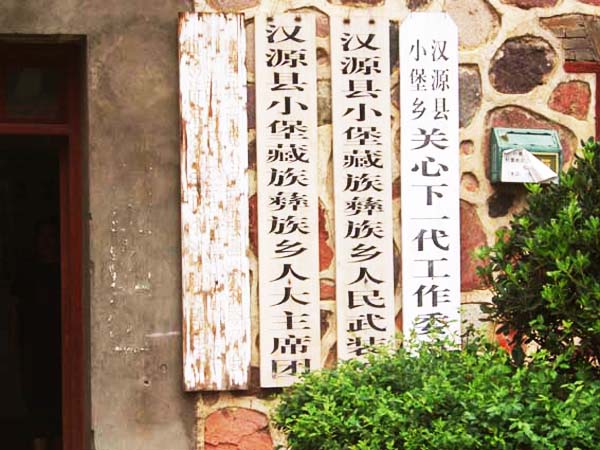 汉源县小堡藏族彝族乡人大主席团
汉源县小堡藏族彝族乡人民武装
汉源县
小堡乡
关心下一代工作委